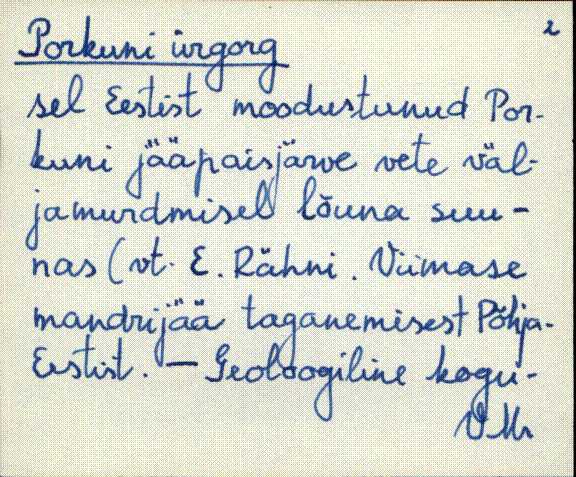 2
Porkuni ürgorg
sel Eestist moodustunud Por-
kuni jääpaisjärve vete väl-
jamurdmisel lõuna suu-
nas (vt. E. Rähni. Viimase
mandrijää taganemisest Põhja-
Eestist. — Geoloogiline kogu-